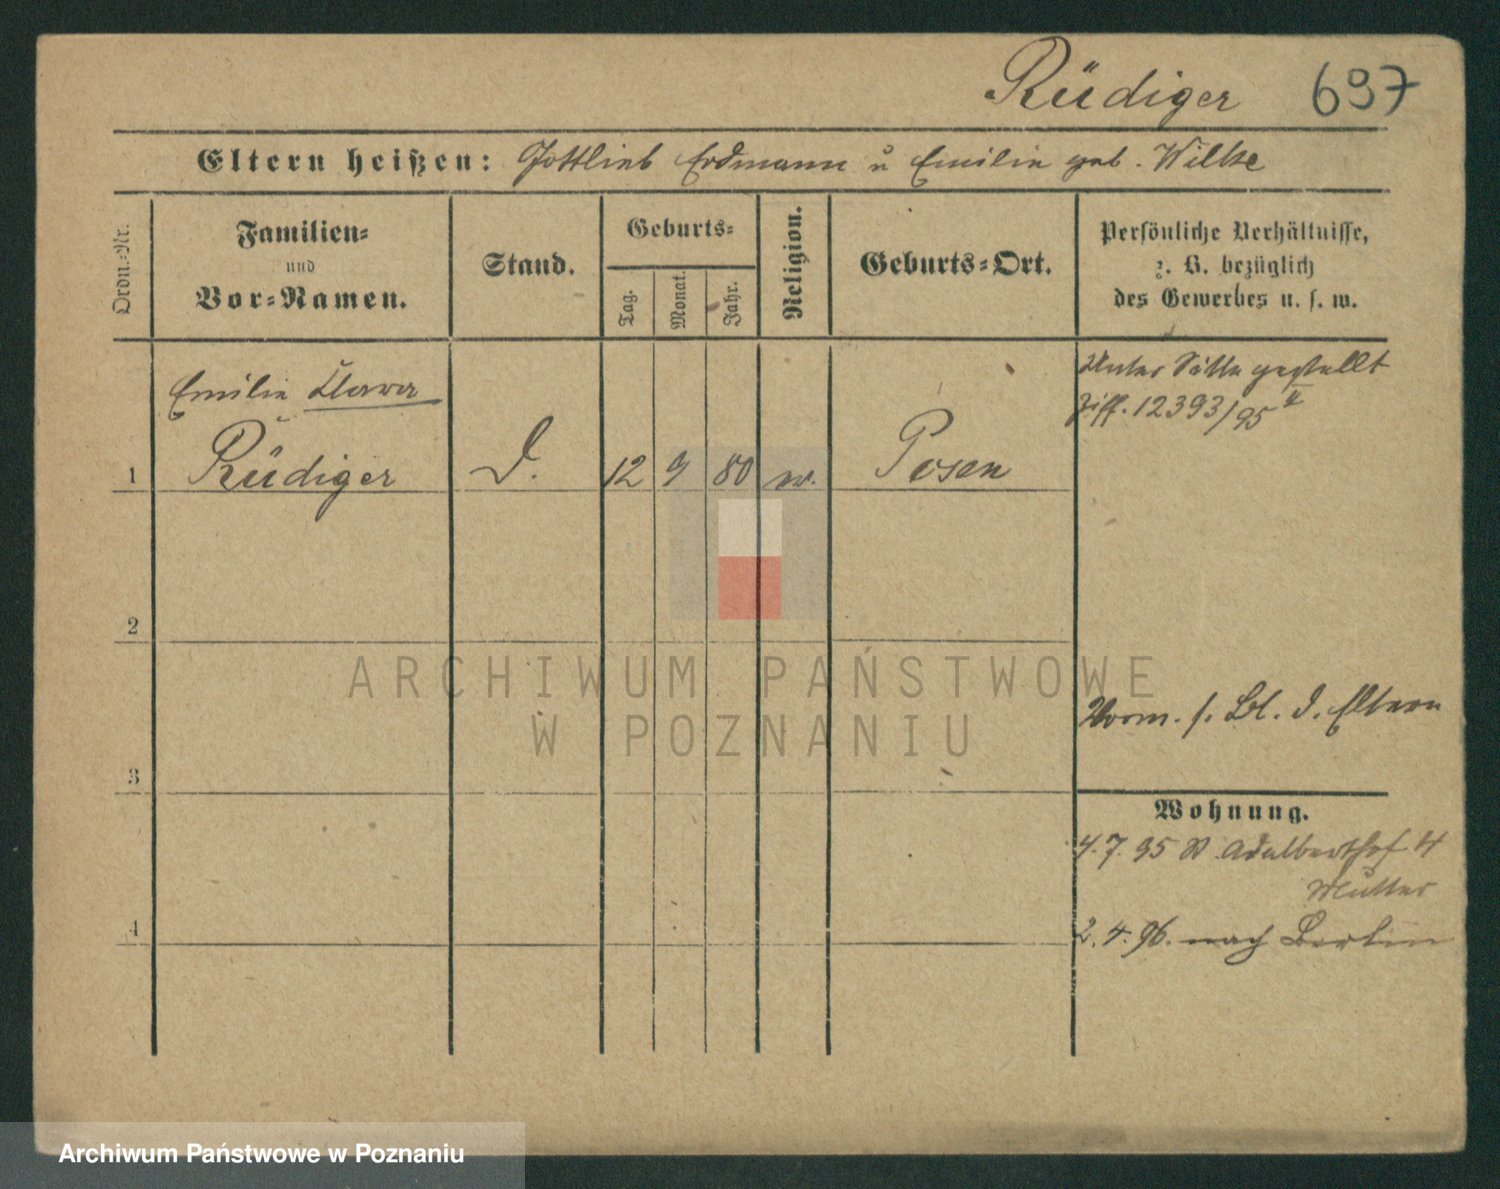 Rüdiger 697
Eltern heißen: Gottlieb Erdmann u Emilie geb. Wilke
Ordn.-Nr.
Familien-
und
Vor-Namen.
Stand.
Geburts-
Tag.
Monat.
Jahr.
Religion.
Geburts-Ort.
Persönliche Verhältnisse,
z. B. bezüglich
des Gewerbes u. s. w.
Emilie Klara
1 Rüdiger D. 12 9 80 ev. Posen
Unter Sitte gestellt
Ziff. 12393/95 II
2
3
4
Vorm. s. Bl. d. Eltern
Wohnung.
4.7.95 St Adalberthof 4
Mutter
2.4.96. nach Berlin
ARCHIWUM PAŃSTWOWE
W POZNANIU
Archiwum Państwowe w Poznaniu